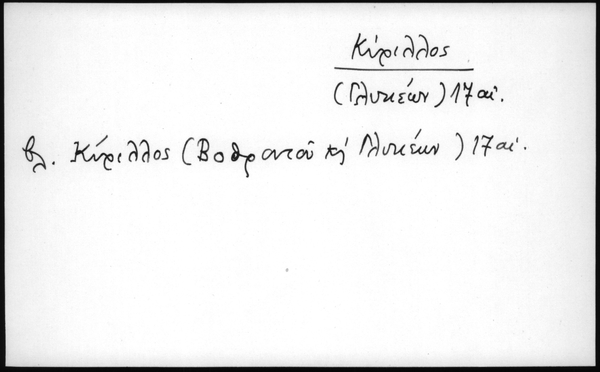 Κύριλλος
(Γλυκέων) 17 αἰ.
βλ. Κύριλλος (Βοθροντοῦ κ̣ Γλυκέων) 17 αἰ.